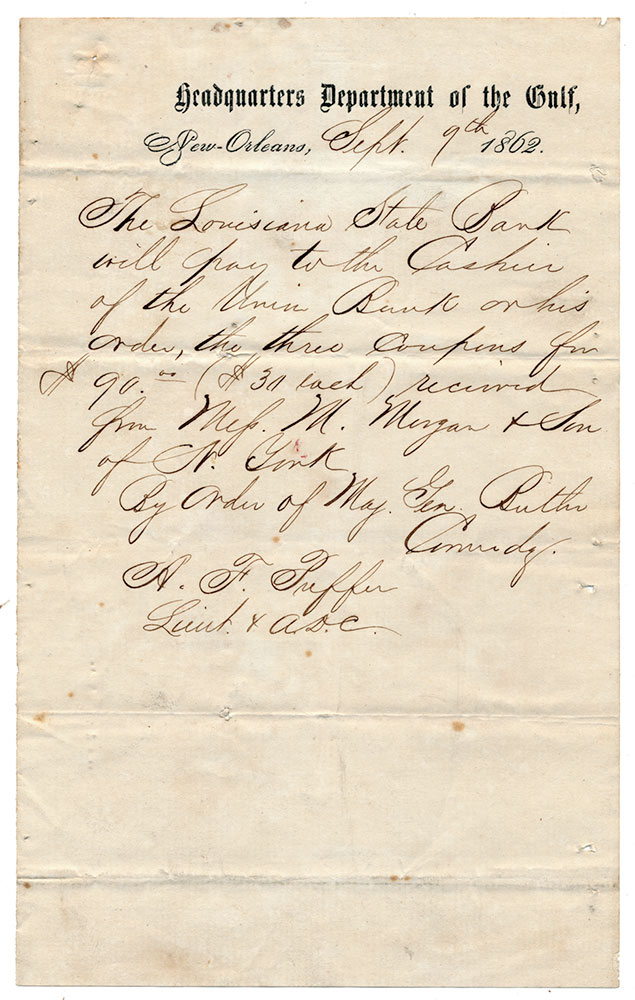 Headquarters Department of the Gulf,
New-Orleans, Sept. 9th 1862.
The Louisiana State Bank
will pay to the Cashier
of the Union Bank or his
order, the three Coupons for
$90.00 ($30 each) received
from Mess. M. Morgan & Son
of N. York
By order of Maj. Gen. Butler
Comndg.
A. F. Puffer
Lieut. & A.D.C.